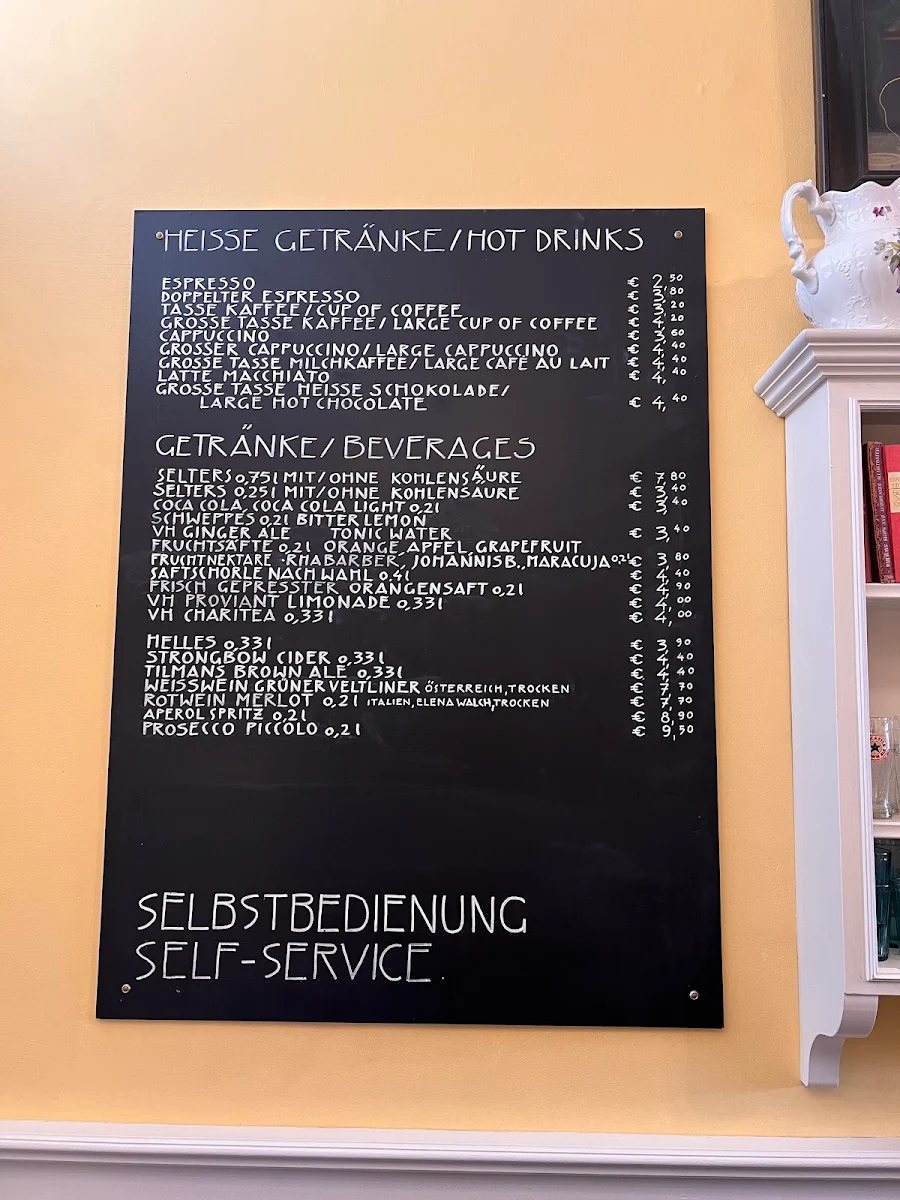 HEISSE GETRÄNKE/HOT DRINKS
ESPRESSO € 2,50
DOPPELTER ESPRESSO € 3,80
TASSE KAFFEE/CUP OF COFFEE € 3,20
GROSSE TASSE KAFFEE/LARGE CUP OF COFFEE € 4,20
CAPPUCCINO € 3,60
GROSSER CAPPUCCINO/LARGE CAPPUCCINO € 4,40
GROSSE TASSE MILCHKAFFEE/LARGE CAFE AU LAIT € 4,40
LATTE MACCHIATO € 4,40
GROSSE TASSE HEISSE SCHOKOLADE/
LARGE HOT CHOCOLATE € 4,40
GETRÄNKE/BEVERAGES
SELTERS 0,75l MIT/OHNE KOHLENSÄURE € 7,80
SELTERS 0,25l MIT/OHNE KOHLENSÄURE € 3,40
COCA COLA, COCA COLA LIGHT 0,2l € 3,40
SCHWEPPES 0,2l BITTER LEMON
VH GINGER ALE TONIC WATER € 3,40
FRUCHTSÄFTE 0,2l ORANGE, APFEL, GRAPEFRUIT
FRUCHTNEKTARE · RHABARBER, JOHANNISB., MARACUJA 0,2l € 3,80
SAFTSCHORLE NACH WAHL 0,4l € 4,40
FRISCH GEPRESSTER ORANGENSAFT 0,2l € 4,90
VH PROVIANT LIMONADE 0,33l € 4,00
VH CHARITEA 0,33l € 4,00
HELLES 0,33l € 3,90
STRONGBOW CIDER 0,33l € 4,40
TILMANS BROWN ALE 0,33l € 4,40
WEISSWEIN GRÜNER VELTLINER ÖSTERREICH, TROCKEN € 7,70
ROTWEIN MERLOT 0,2l ITALIEN, ELENA WALCH, TROCKEN € 7,70
APEROL SPRITZ 0,2l € 8,90
PROSECCO PICCOLO 0,2l € 9,50
SELBSTBEDIENUNG
SELF-SERVICE.